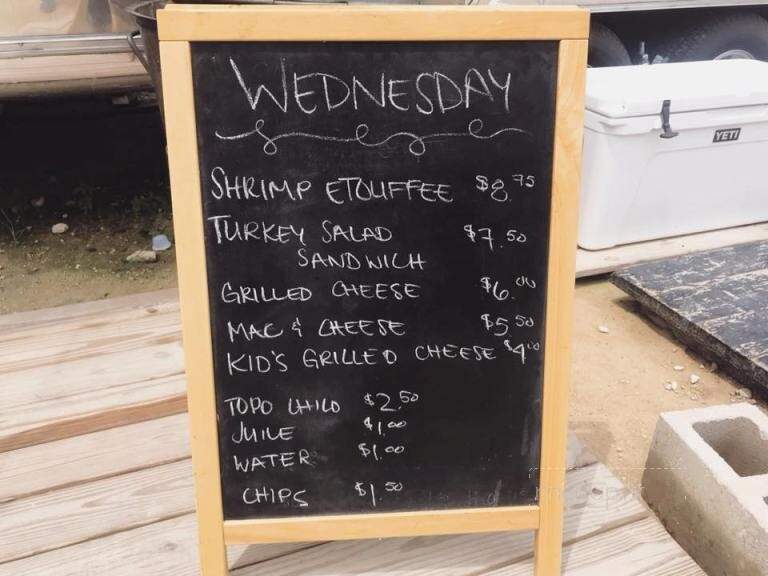 WEDNESDAY
SHRIMP ETOUFFEE $8.75
TURKEY SALAD $7.50
SANDWICH
GRILLED CHEESE $6.00
MAC & CHEESE $5.50
KID'S GRILLED CHEESE $4.00
TOPO CHICO $2.50
JUICE $1.00
WATER $1.00
CHIPS $1.50
YETI